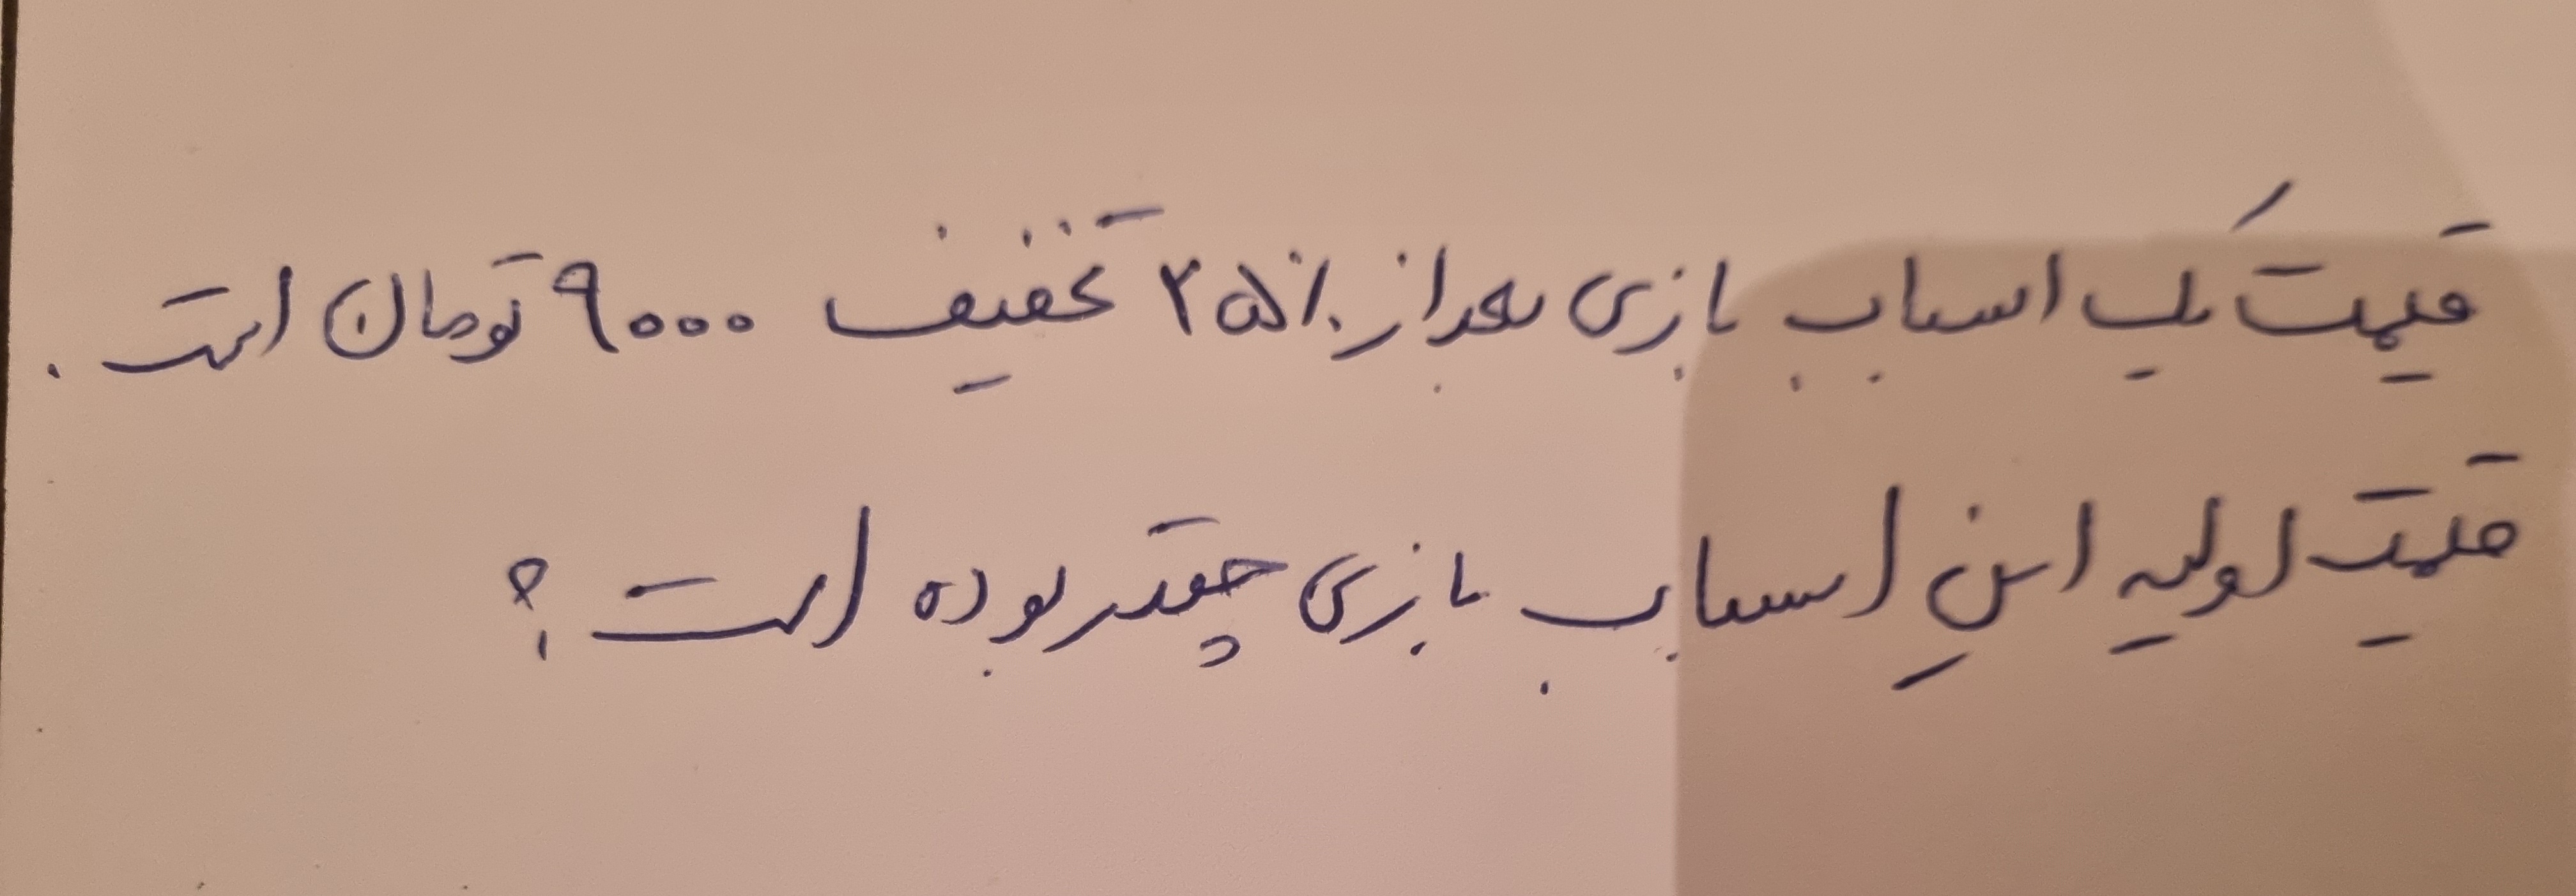 قیمت یک اسباب بازی بعد از ۲۵٪ تخفیف ۹۰۰۰ تومان است .
قیمت اولیه این اسباب بازی چقدر بوده است ؟